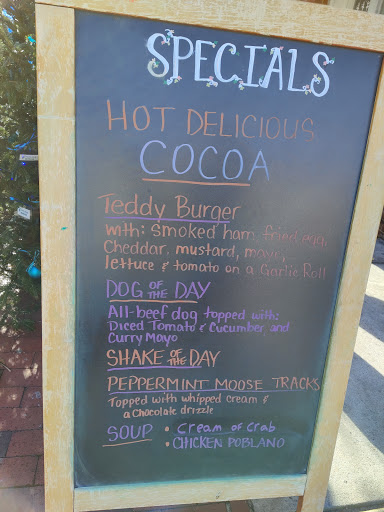 SPECIALS
HOT DELICIOUS
COCOA
Teddy Burger
with: Smoked ham, fried egg,
Cheddar, mustard, mayo,
lettuce & tomato on a Garlic Roll
DOG OF THE DAY
All-beef dog topped with:
Diced Tomato & Cucumber and
Curry Mayo
SHAKE OF THE DAY
PEPPERMINT MOOSE TRACKS
Topped with whipped cream &
a chocolate drizzle
SOUP • Cream of Crab
• CHICKEN POBLANO